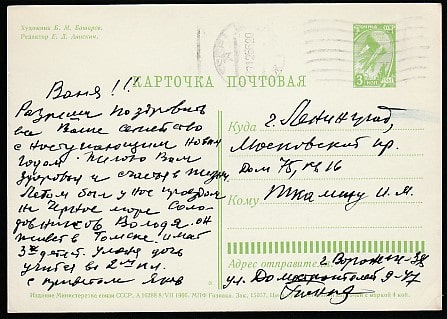 Художник Б. М. Башаров.
Редактор Е. Д. Анискин.
КАРТОЧКА ПОЧТОВАЯ
3
Ваня!!!
Разреши поздравить
Ваше семейство
с наступающим новым
годом. Желаю Вам
здоровья и счастья в жизни.
Летом был у нас проездом
на Черное море Соло-
довников Володя. он
живет в Томске имеет
3х детей. у меня дочь
учится во 2ом кл.
с приветом Яков
Куда г. Ленинград,
Московский пр.
Дом 75, кв 16
Кому Ткамицу И.М.
Адрес отправителя: г. Воронеж-38
ул. Домостроителей 9-47
Издание Министерства связи СССР. А 16288 8/VII 1966. МПФ Гознака. Зак.